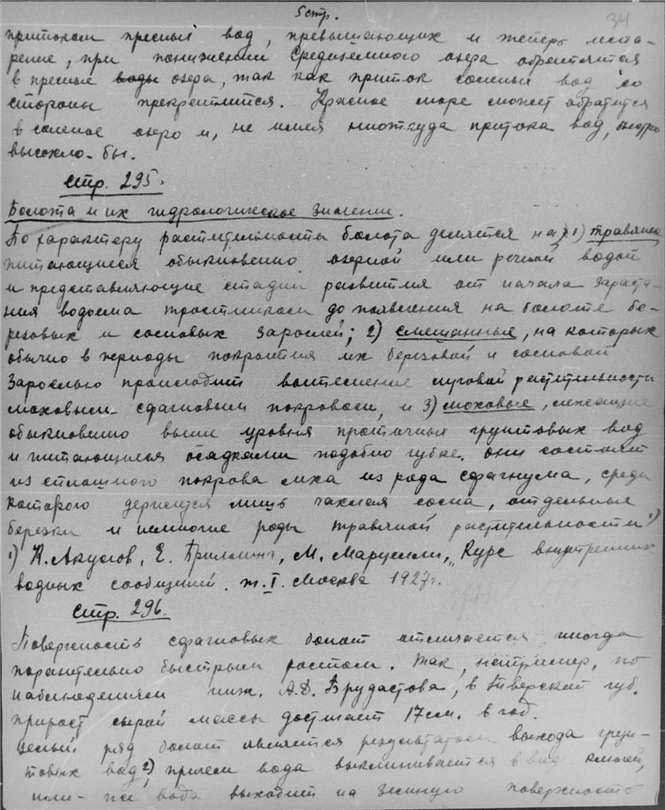 5 стр.
34
притоком пресных вод, превышающих и теперь испа-
рение, при понижении Средиземного озера обратится
в пресные воды озера, так как приток соленых вод со
стороны прекратится. Красное море сможет обратится
в соленое озеро и, не имея ниоткуда притока вод, скоро
высохло-бы.
Стр. 295.
Болота и их гидрологическое значение.
По характеру растительности болота делятся на: 1) травяные
питающиеся обыкновенно озерной или речной водой
и представляющие стадии развития от начала зараста-
ния водоема тростником до появления на болоте бе-
резовых и сосновых зарослей; 2) смешанные, на которых
обычно в периоды покрытия их березовой и сосновой
зарослью происходит вытеснение луговой растительности
моховым-сфагновым покровом, и 3) моховые, лежащие
обыкновенно выше уровня проточных грунтовых вод
и питающиеся осадками подобно губке. Они состоят
из сплошного покрова мха из рода сфагнума, среди
которого держится лишь чахлая сосна, отдельные
березки и немногие роды травяной растительности ¹)
¹) К. Акулов, Е. Бриллинг, М. Марцелли, „Курс внутренних
водных сообщений. т. I. Москва 1927 г.
Стр. 296.
Поверхность сфагновых болот отличается иногда
поразительно быстрым ростом. Так, например, по
наблюдениям инж. А.Д. Брудастова, в Тверской губ.
прирост сырой массы достигает 17 см. в год.
Целый ряд болот является результатом выхода грун-
товых вод ²), причем вода выклинивается в виде ключей,
или-же вода выходит на земную поверхность